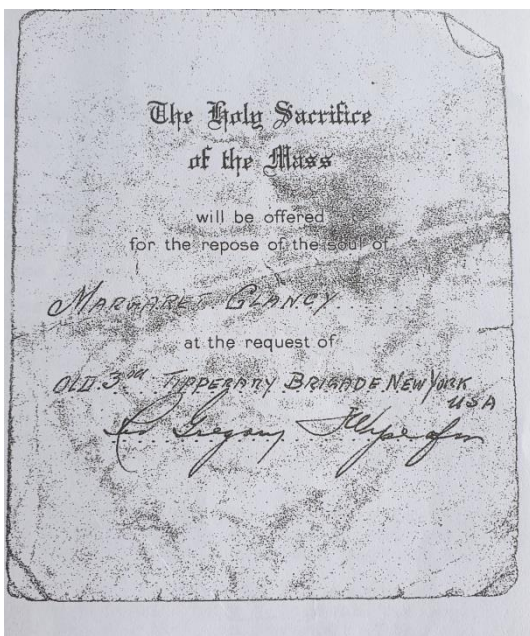 The Holy Sacrifice
of the Mass
will be offered
for the repose of the soul of
MARGARET GLANCY
at the request of
OLD. 3RD TIPPERARY BRIGADE NEW YORK
USA
Gregory